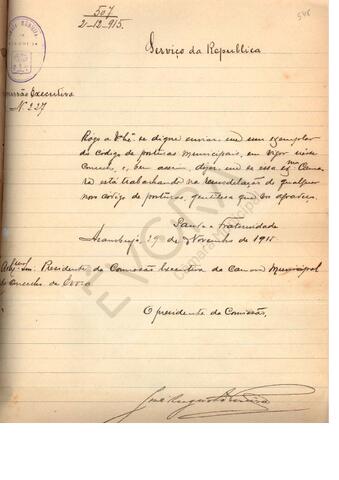 507
2-12-915.
548
Serviço da Republica
Commissão Executiva
Nº 227
Rogo a V. Exª se digne enviar-me um exemplar
do codigo de posturas municipais, em vigor nesse
concelho e, bem assim, dizer-me se essa Exma Cama-
ra está trabalhando na remodelação de qualquer
novo codigo de posturas,
Saude e Fraternidade
Azambuja, 29 de Novembro de 1915
Presidente da Comissão Executiva da Camara Municipal
do concelho de Evora
O presidente da Comissão,
EVORA